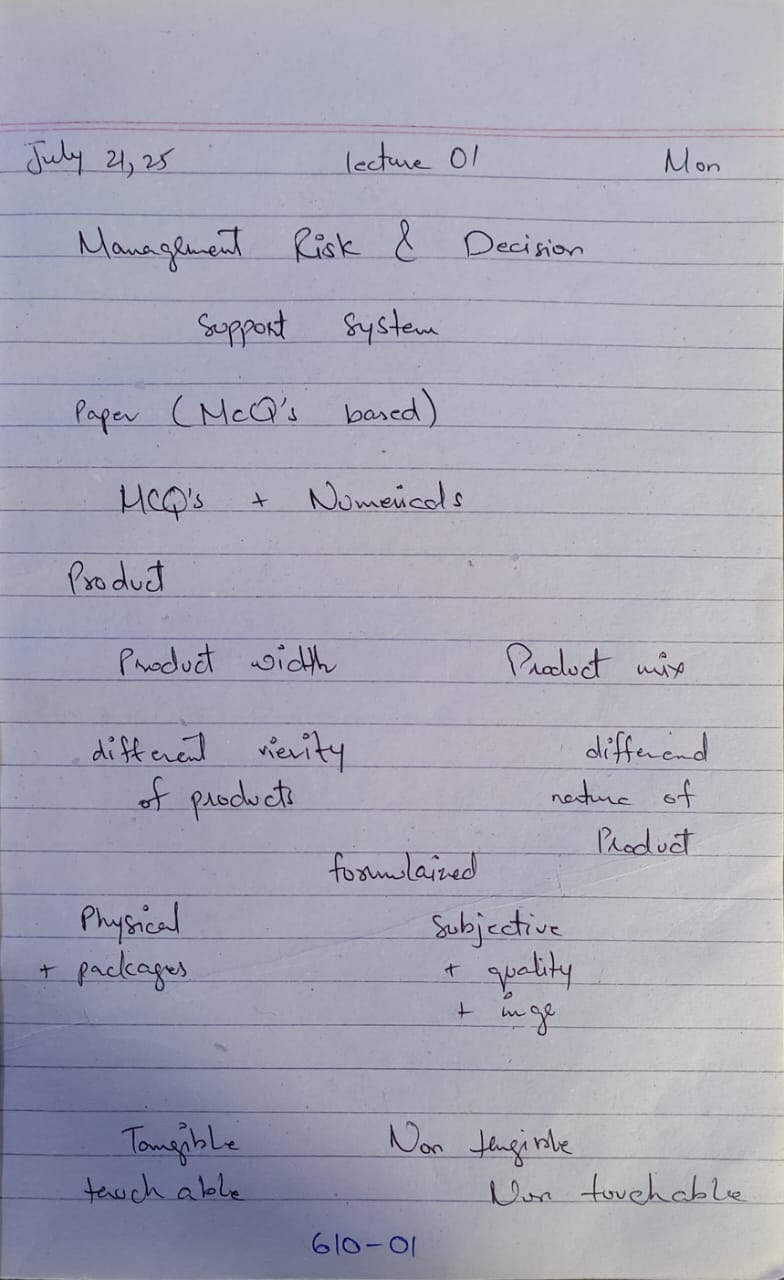 July 21, 25 lecture 01 Mon
Management Risk & Decision
Support System
Paper (McQ's based)
MCQ's + Numericals
Product
Product width Product mix
different vierity differend
of products nature of
Product
formulaized
Physical Subjective
+ packages + quality
+ imge
Tangible Non tengible
touch able Non touchable
610-01